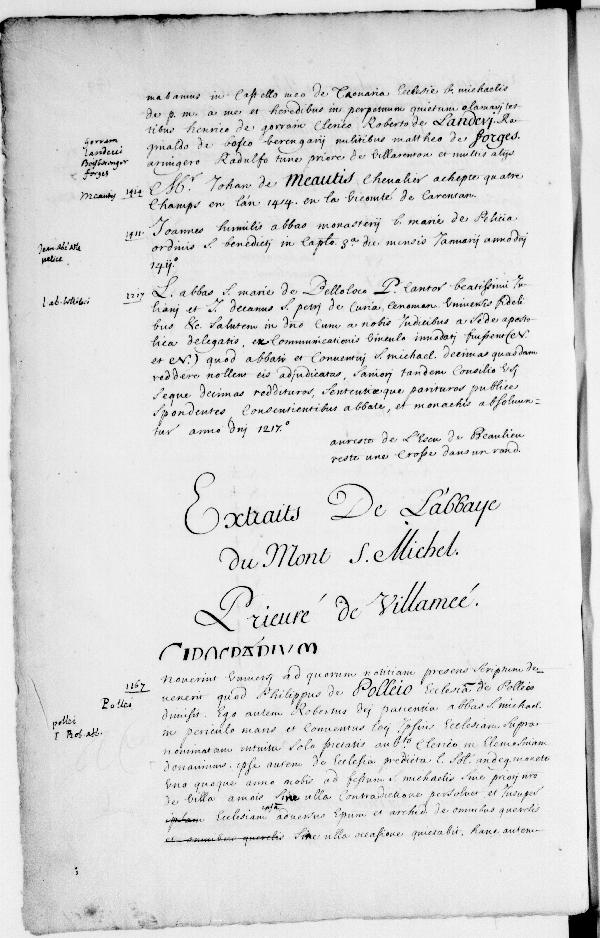 mabamus in Castello meo de Taonaria Ecclesie b. michaelis
de p. m. a me et heredibus in perpetuum quietum clamavi tes-
tibus henrico de gorram Clerico Roberto de Landevj. Ra-
ginaldo de bosco berengarij militibus mattheo de fforges.
armigero Radulfo tunc priore de Villarenton et multis alijs
Gorram
Landevi
Boisberenger
forges
Meautis 1414
Mr. Johan de Meautis Chevalier achepte quatre
Champs en l'an 1414. en la Vicomté de Carentan.
Jean abé de la
pelice
1411
Joannes humilis abbas monasterij b. marie de Pelicia
ordinis S. benedictj in Caplo 3a die mensis Januarij anno dnj
1411º
1217
L. abbas S. marie de Belloloco P. Cantor beatissimi Ju-
lianj et J. decanus S. petrj de Curia, Cenoman. Universis fideli-
bus &c. Salutem in dno Cum a nobis Judicibus a Sede aposto-
lica delegatis, excommunicationis vinculo innodati fuissent (N.
et N.) quod abbati et Conventuj S. michael. decimas quasdam
reddere nollent eis adjudicatas, Saniorj tandem Consilio Usj
Seque decimas reddituros, Sententieque parituros publice
Spondentes Consentientibus abbate, et monachis absoluun-
tur anno dnj 1217º
au reste de l'Escu de Beaulieu
reste une Crosse dans un rond.
Extraits De L'abbaye
du Mont S. Michel.
Prieuré de Villameé.
CIROGRAPHUM
1167
Polles
pollei
Rob. abb.
Noverint Universj ad quorum notitiam presens Scriptum de-
venerit quod Philippus de Polleio Ecclesiã de Polleio
dimisit. Ego autem Robertus dej patientia abbas S. michael.
in periculo maris et Conventus loci Ipsius Ecclesiam Supra-
nominatam intuitu Solo pietatis aubto Clerico in Elemosinam
donavimus. ipse autem de Ecclesia predicta L. Sol. andeg. monete
Uno quoque anno nobis ad festum S. michaelis Sive priorj nro
de Villa amois Sine ulla Contradictione persolvet et Insuper
ipsam Ecclesiam nostã adversus Epum et archid. de omnibus querelis
et omnibus querelis Sine ulla occasione quietabit. hanc autem